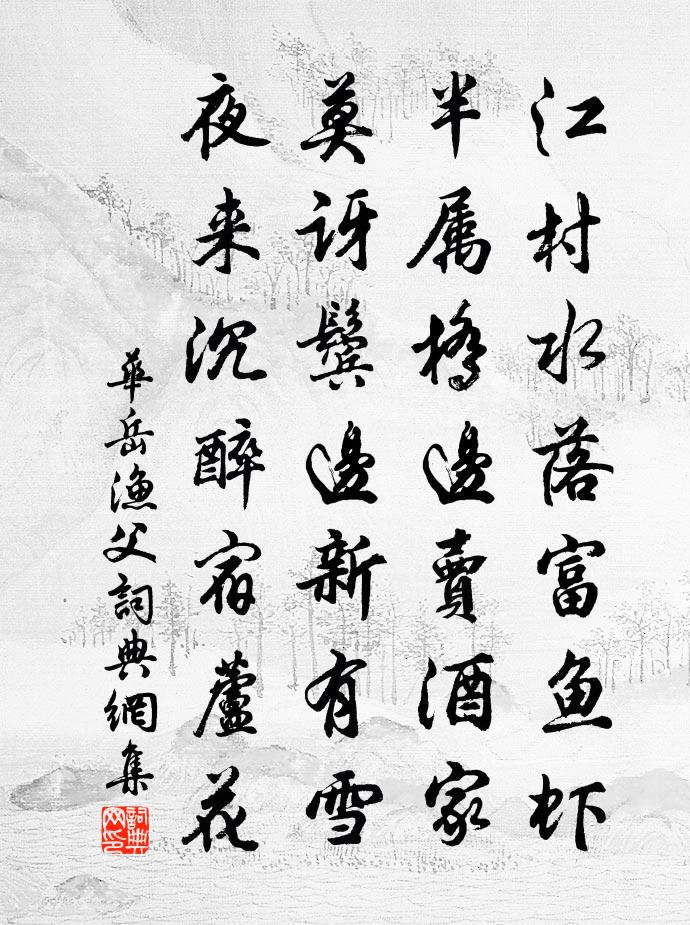 江村水落富鱼虾
半属桥邊賣酒家
莫讶鬓邊新有雪
夜来沉醉宿蘆花
華岳漁父詞典網集
詞典网印